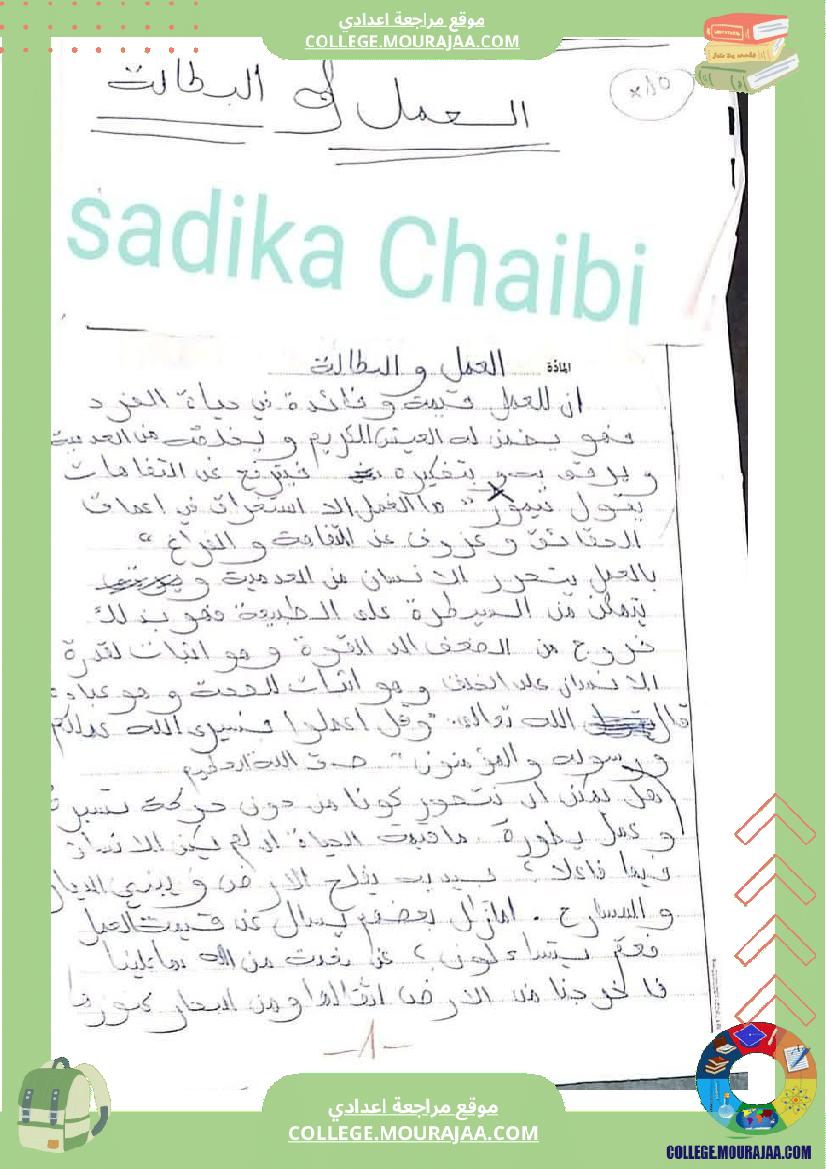 موقع مراجعة اعدادي
COLLEGE.MOURAJAA.COM
x10
العمل و البطالة
sadika Chaibi
المادّة العمل و البطالة
ان للعمل قيمة و فائدة في حياة الفرد
فهو يضمن له العيش الكريم و يخلصه من العدمية
و يرقى به و بتفكيره فيترفع عن التفاهات
يقول تيمور " ما العمل الا استغراق في اعماق
الحقائق و عزوف عن التفاهة و الفراغ "
بالعمل يتحرر الانسان من العدمية و
يتمكن من السيطرة على الطبيعة فهو بذلك
خروج من الضعف الى القوة و هو اثبات لقدرة
الانسان على الخلق و هو اثبات للصحة و هو عبادة
قال الله تعالى: "و قل اعملوا فسيرى الله عملكم
و رسوله و المؤمنون" صدق الله العظيم
هل يمكن ان نتصور كونا من دون حركة تسيره
و عمل يطوره. ما قيمة الحياة ان لم يكن الانسان
فيها فاعلا؟ بيديه يفلح الارض و يبني الديار
و المسارح. امازال بعضهم يسال عن قيمة العمل
فعمّ يتساءلون؟ عن نعمة من الله بها علينا
فاخرجنا من الارض اثقالها و من البحار كنوزها
-1-
موقع مراجعة اعدادي
COLLEGE.MOURAJAA.COM
COLLEGE.MOURAJAA.COM